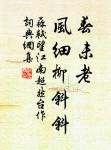 春未老
風細柳斜斜
蘇軾望江南超然台作
詞典網集